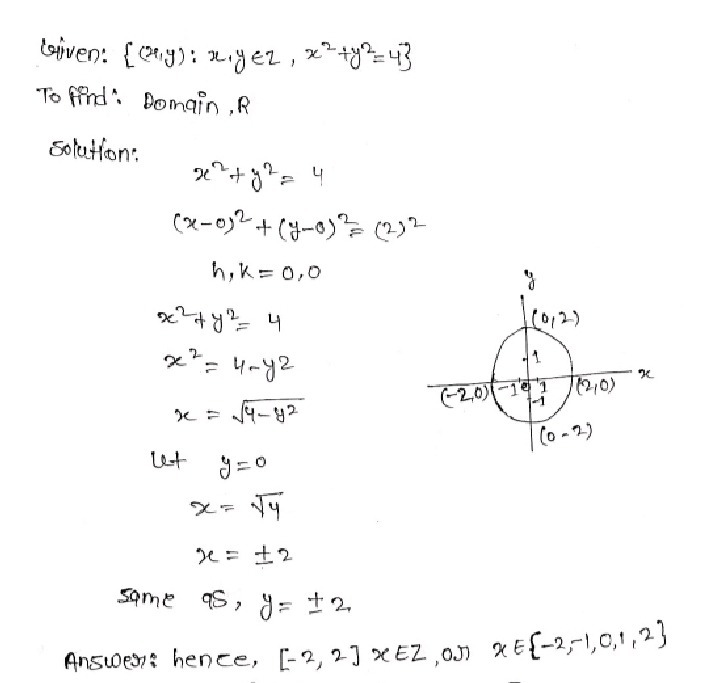 Given: {(x,y): x,y∈z, x²+y²=4}
To find: Domain, R
Solution:
x²+y²= 4
(x-0)²+(y-0)²= (2)²
h,k=0,0
x²+y²= 4
x²= 4-y2
x = √4-y2
Let y=0
x= √4
x= ±2
Same as, y= ±2
y
(0,2)
1
(-2,0) -1 0 1 (2,0) x
-1
(0-2)
Answer: hence, [-2,2] x∈Z, or x∈{-2,-1,0,1,2}